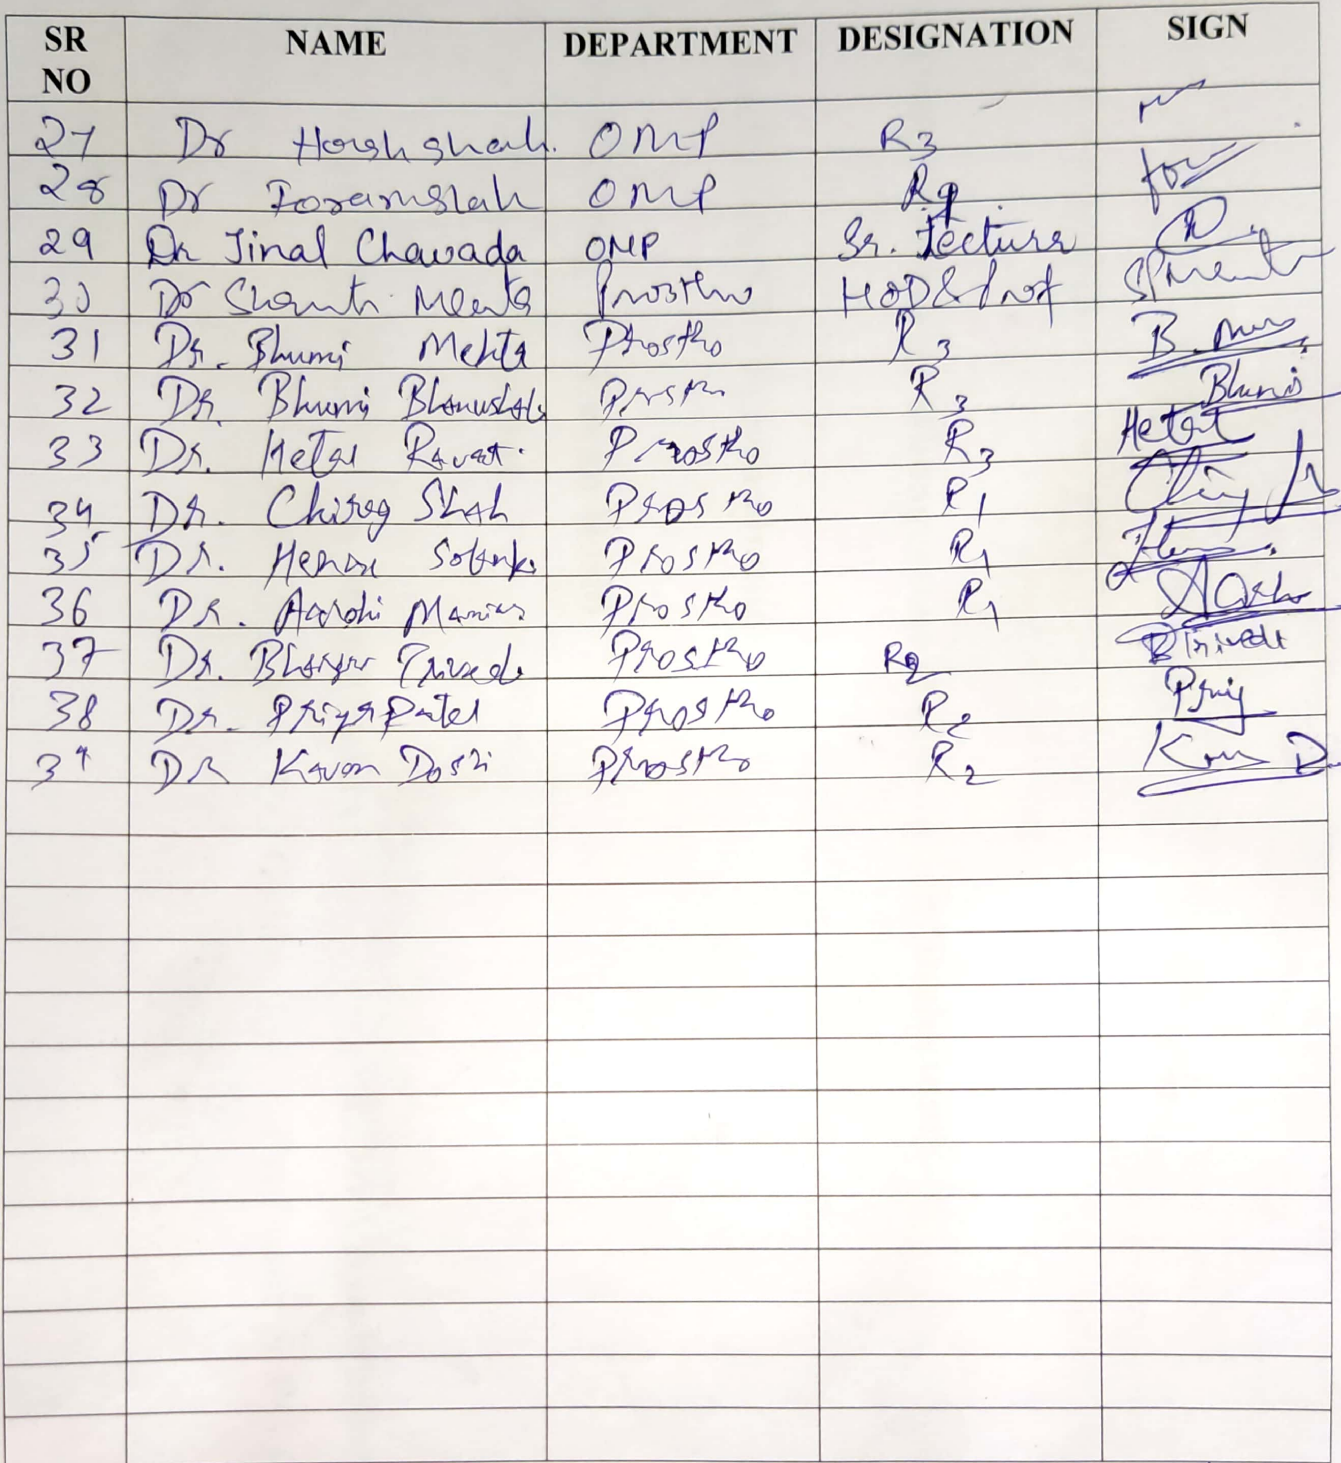 SR NO NAME DEPARTMENT DESIGNATION SIGN
27 Dr Harsh shah. OMP R3
28 Dr Foram shah OMP
29 Dr Jinal Chavada OMP Sr. Lecturer
30 Dr Mehta Prostho HOD & Prof
31 Dr. Bhumi Mehta Prostho R3 B.
32 Dr. Bhumi Bhanushali Prostho R3 Bhumi
33 Dr. Hetal Ravat. Prostho R3 Hetal
34 Dr. Chirag Shah Prostho R1
35 Dr. Solanki Prostho R1
36 Dr. Aarohi Prostho R1
37 Dr. Trivedi Prostho R2 BTrivedi
38 Dr. Priya Patel Prostho R2 Priy
39 Dr Kavan Doshi Prostho R2